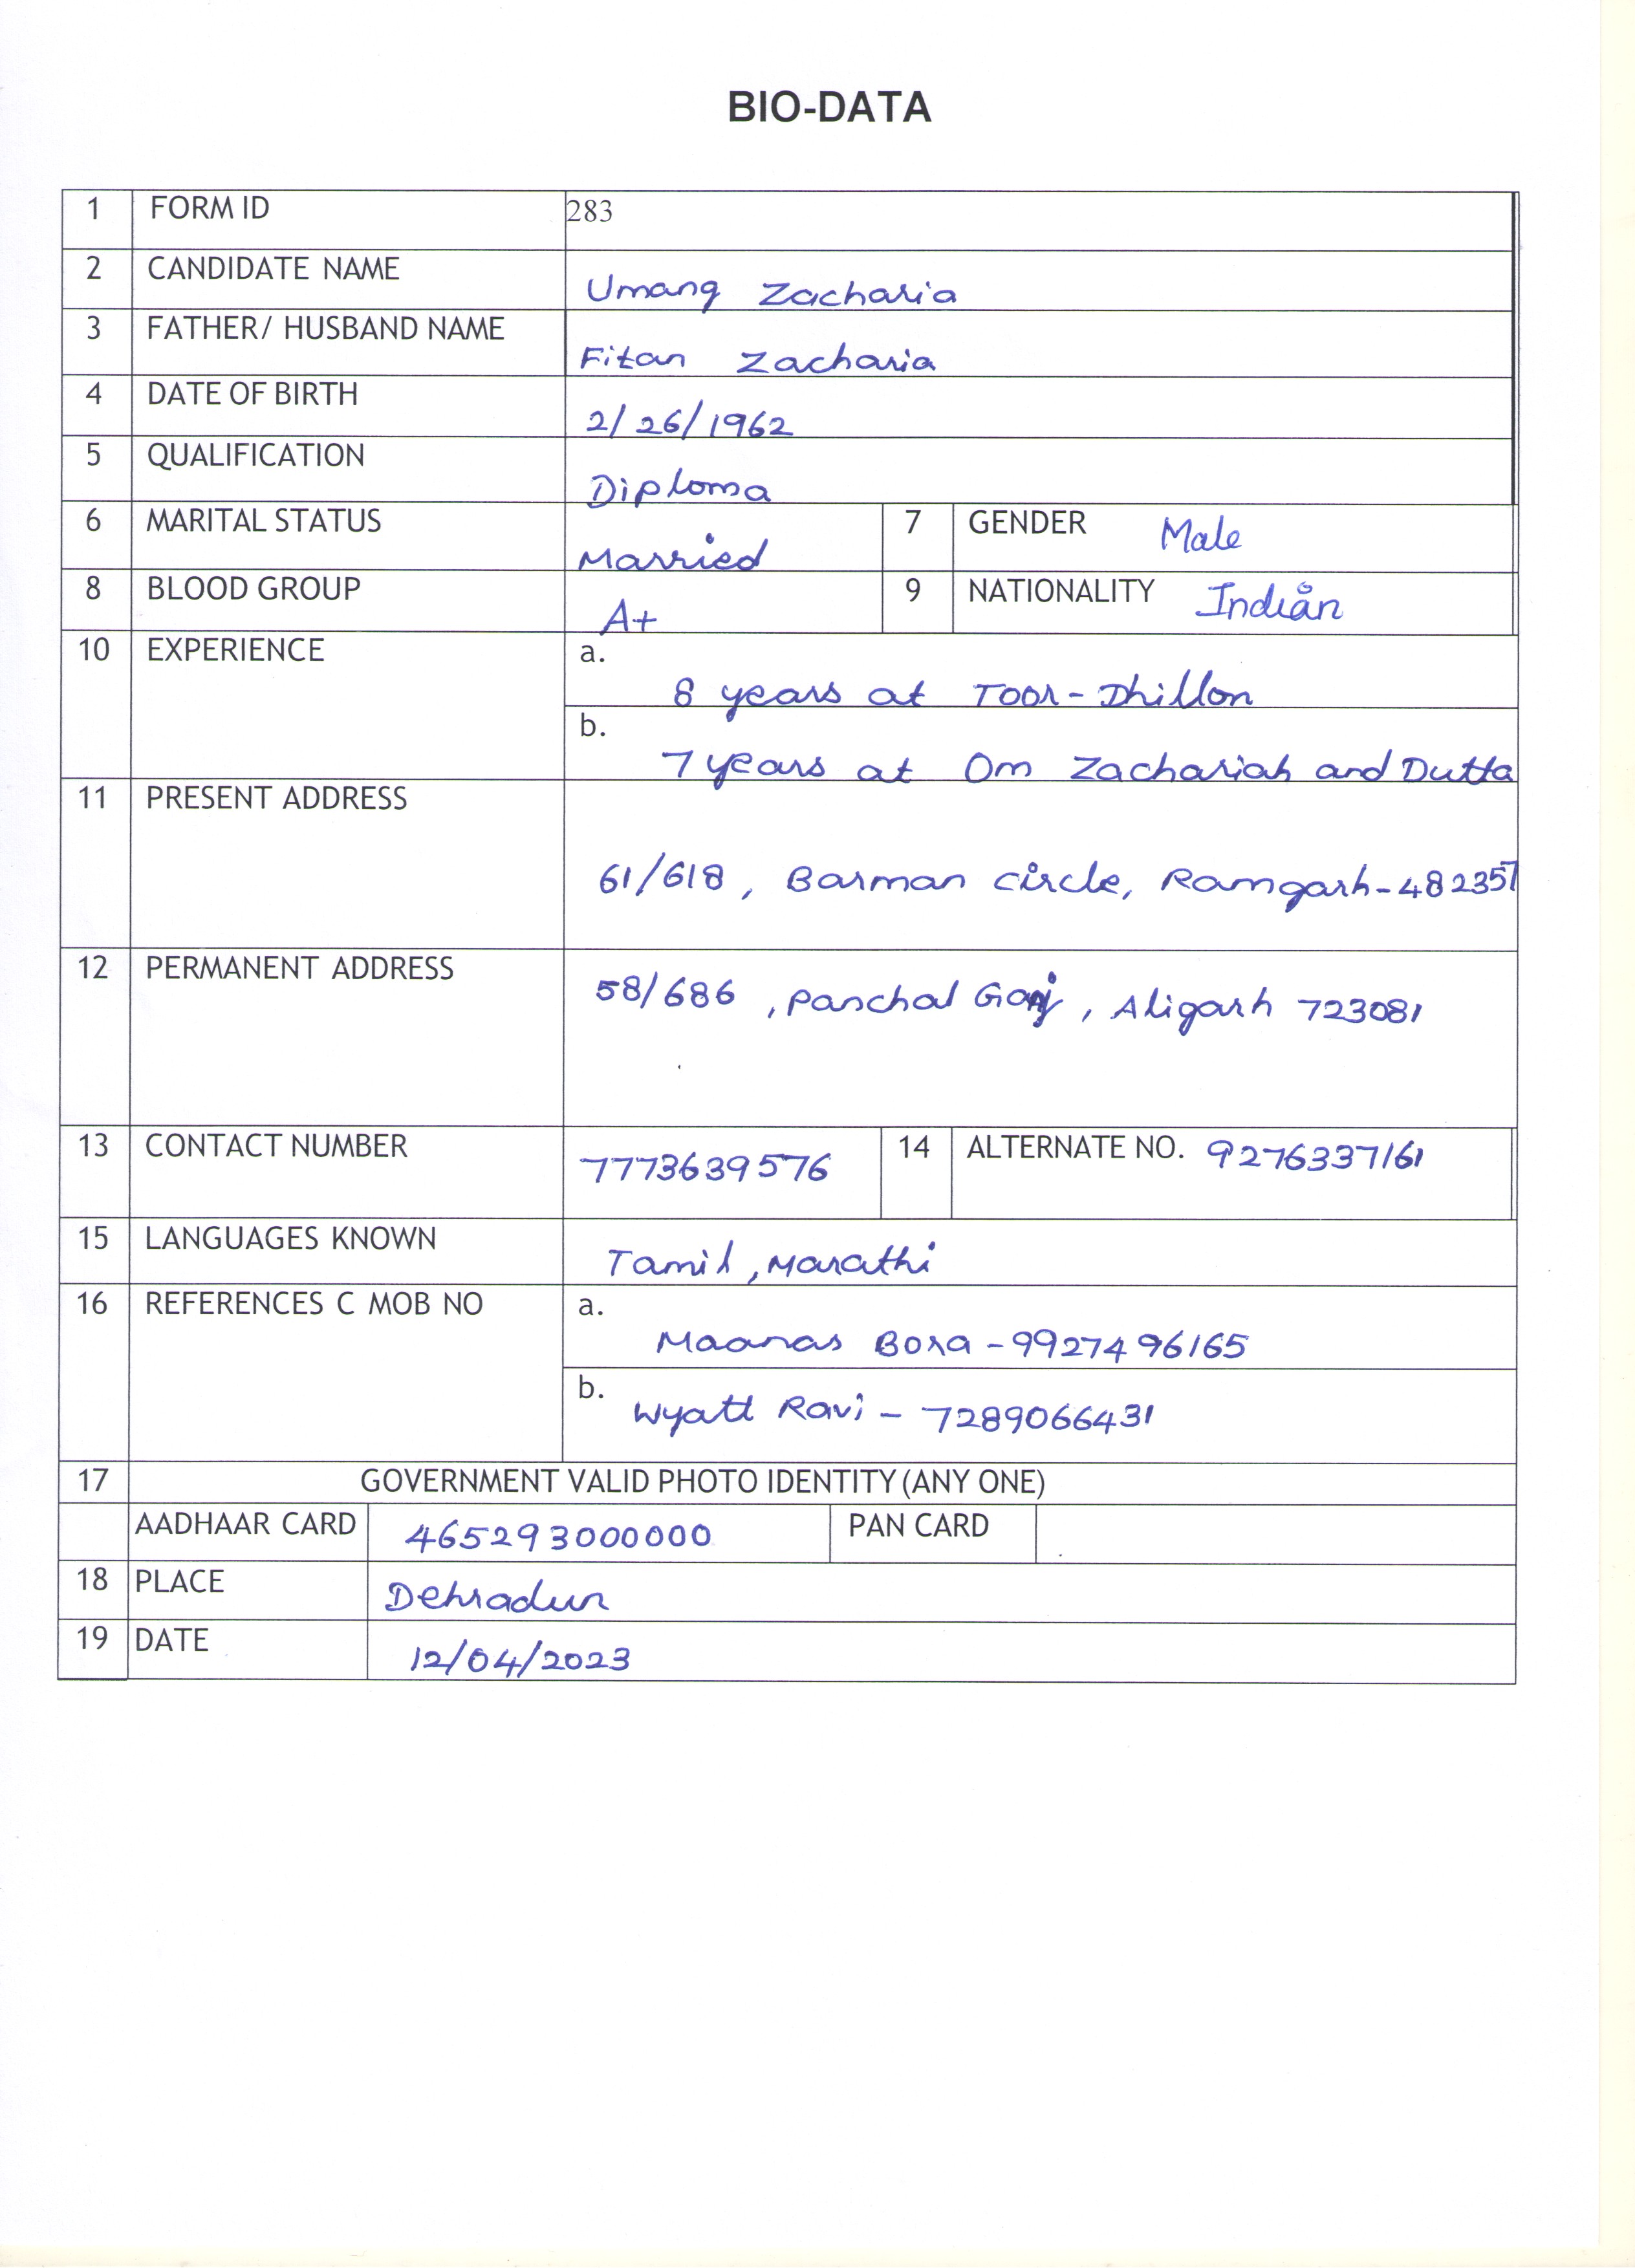 BIO-DATA
1 FORM ID 283
2 CANDIDATE NAME Umang Zacharia
3 FATHER/ HUSBAND NAME Fitan Zacharia
4 DATE OF BIRTH 2/26/1962
5 QUALIFICATION Diploma
6 MARITAL STATUS Married 7 GENDER Male
8 BLOOD GROUP A+ 9 NATIONALITY Indian
10 EXPERIENCE a. 8 years at Toor-Dhillon
b. 7 years at Om Zachariah and Dutta
11 PRESENT ADDRESS 61/618, Barman circle, Ramgarh-482357
12 PERMANENT ADDRESS 58/686, Panchal Ganj, Aligarh 723081
13 CONTACT NUMBER 7773639576 14 ALTERNATE NO. 9276337161
15 LANGUAGES KNOWN Tamil, Marathi
16 REFERENCES C MOB NO a. Maanas Bora - 9927496165
b. Wyatt Ravi - 7289066431
17 GOVERNMENT VALID PHOTO IDENTITY (ANY ONE)
AADHAAR CARD 465293000000 PAN CARD
18 PLACE Dehradun
19 DATE 12/04/2023